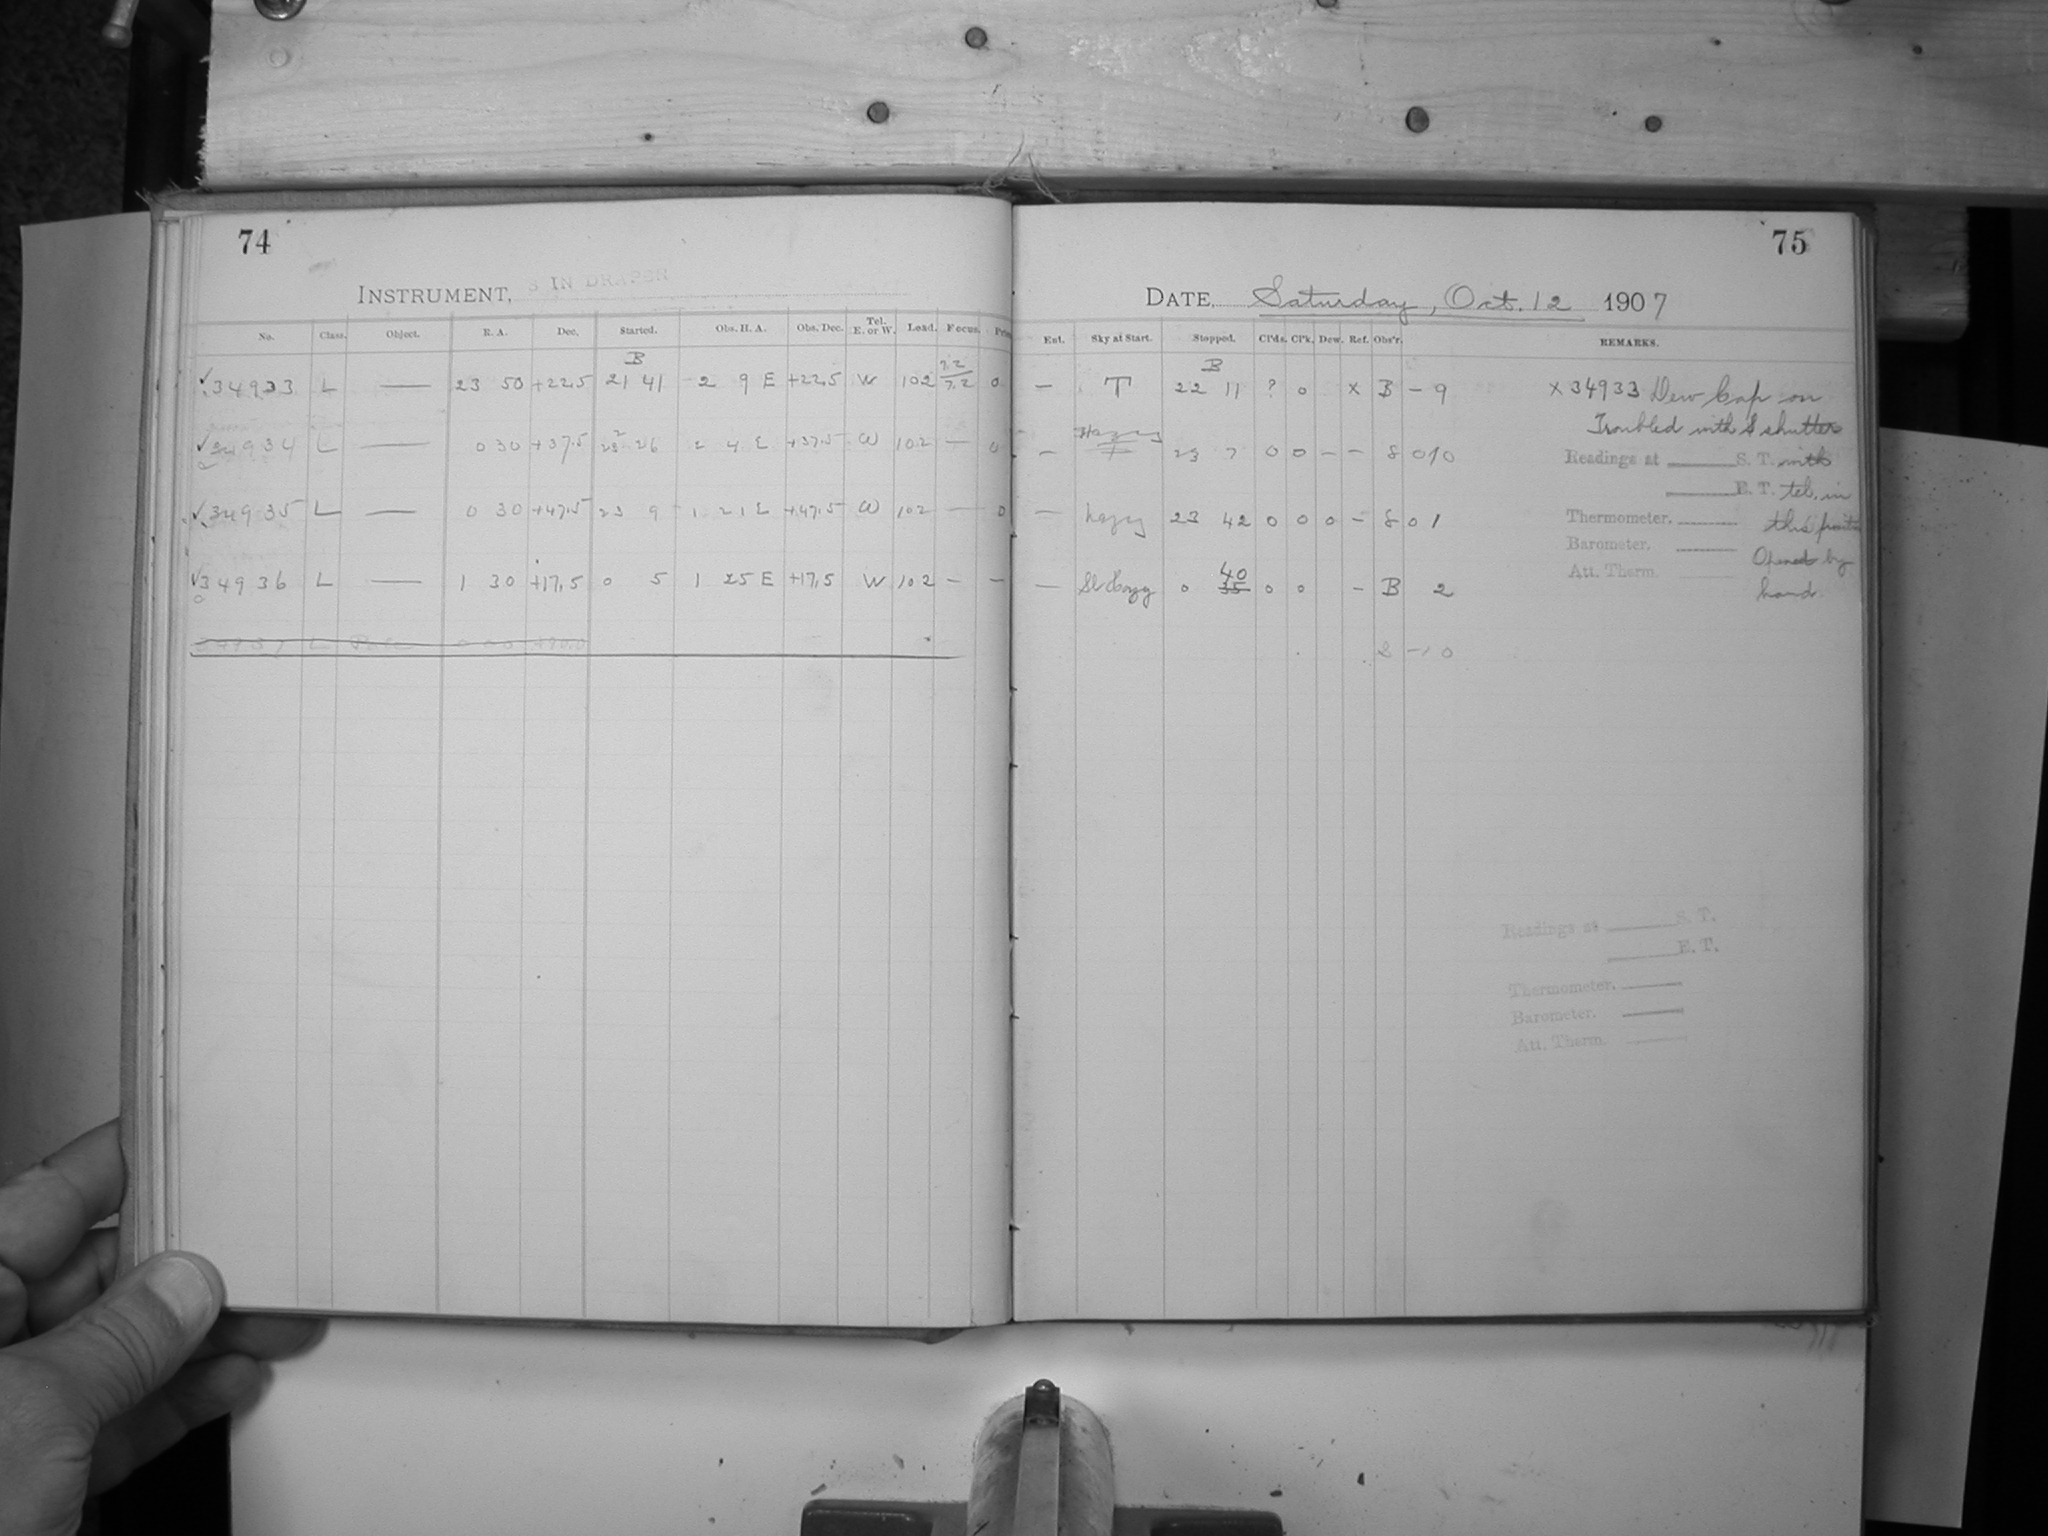 74
INSTRUMENT, 8 IN DRAPER
No. Class. Object. R. A. Dec. Started. Obs. H. A. Obs. Dec. Tel. E. or W. Lead. Focus.
B
✓34933 L — 23 50 +22.5 21 41 -2 9 E +22.5 W 102 7.2 7.2 0
✓34934 L — 0 30 +37.5 26 2 4 E +37.5 W 102 — 0
✓34935 L — 0 30 +47.5 23 9 -1 21 E +47.5 W 102 — 0
✓34936 L — 1 30 +17.5 0 5 1 25 E +17.5 W 102 — —
75
DATE, Saturday, Oct. 12 1907
Ent. Sky at Start. Stopped. Cl'ds. Cl'k. Dew. Ref. Obs'r. REMARKS.
B
— T 22 11 ? 0 x B - 9
— Hazy 23 7 0 0 — — S
— hazy 23 42 0 0 0 - S 0 1
40
— Sl Hazy 0 35 0 0 - B 2
S -10
x 34933 Dew Cap on
Troubled with S shutter
Readings at S. T. with
E. T. tel. in
Thermometer. this
Barometer. Opened by
Att. Therm. hand
Readings at S. T.
E. T.
Thermometer.
Barometer.
Att. Therm.